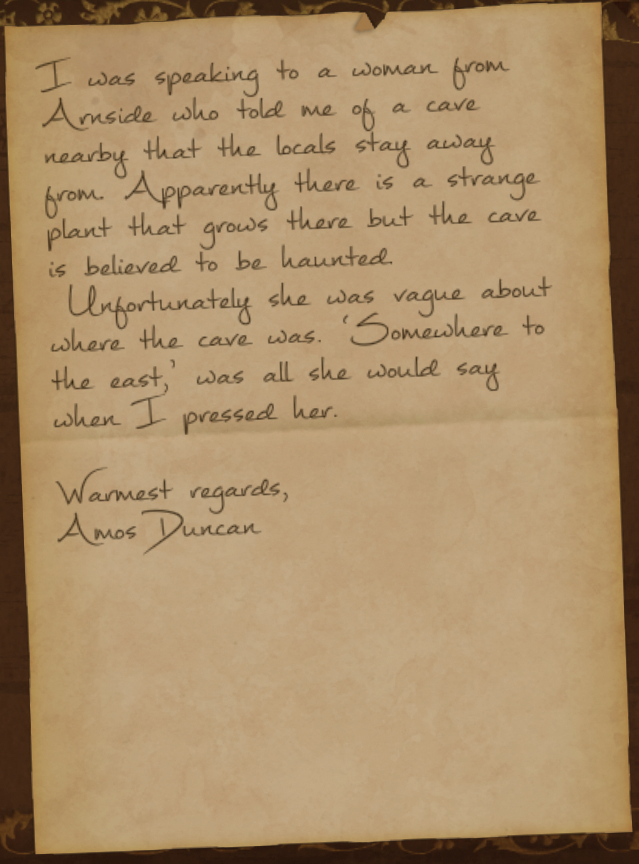 I was speaking to a woman from
Arnside who told me of a cave
nearby that the locals stay away
from. Apparently there is a strange
plant that grows there but the cave
is believed to be haunted.
Unfortunately she was vague about
where the cave was. 'Somewhere to
the east,' was all she would say
when I pressed her.
Warmest regards,
Amos Duncan